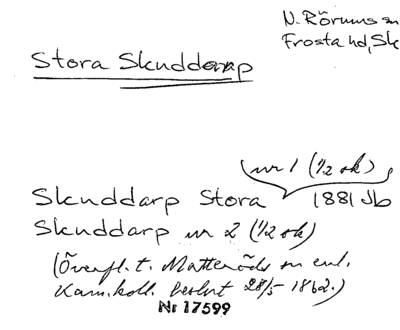 N. Rörums sn
Frosta hd, Sk
Stora Skuddarp
nr 1 (1/2 sk)
Skuddarp Stora 1881 Jb
Skuddarp nr 2 (1/2 sk)
(Överfl. t. Matteröds sn enl.
Kam. koll. beslut 28/5 1862.)
Nr 17599